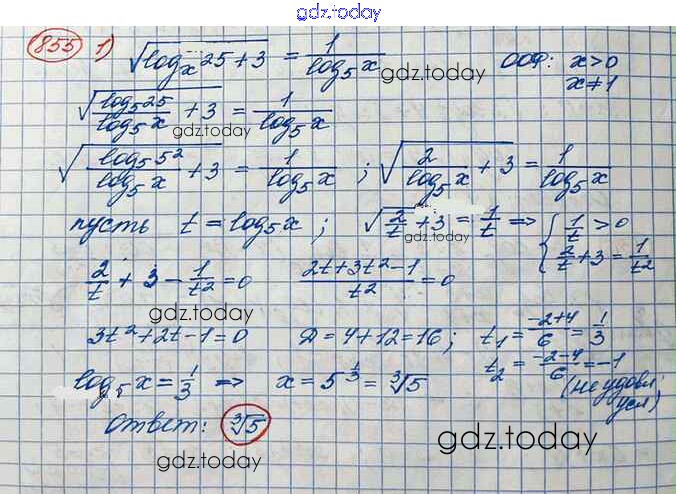 gdz.today
855 1) √(logₓ25+3) = 1/log₅x ООФ: x>0
gdz.today x≠1
√(log₅25/log₅x + 3) = 1/log₅x
gdz.today
√(log₅5²/log₅x + 3) = 1/log₅x ; √(2/log₅x + 3) = 1/log₅x
пусть t = log₅x ; √(2/t + 3) = 1/t ⇒ { 1/t > 0
gdz.today 2/t + 3 = 1/t²
2/t + 3 − 1/t² = 0 (2t+3t²−1)/t² = 0
gdz.today
3t²+2t−1=0 Д=4+12=16; t₁ = (−2+4)/6 = 1/3
t₂ = (−2−4)/6 = −1
log₅x = 1/3 ⇒ x = 5^(1/3) = ∛5 (не удовл.
усл)
Ответ: ∛5
gdz.today gdz.today